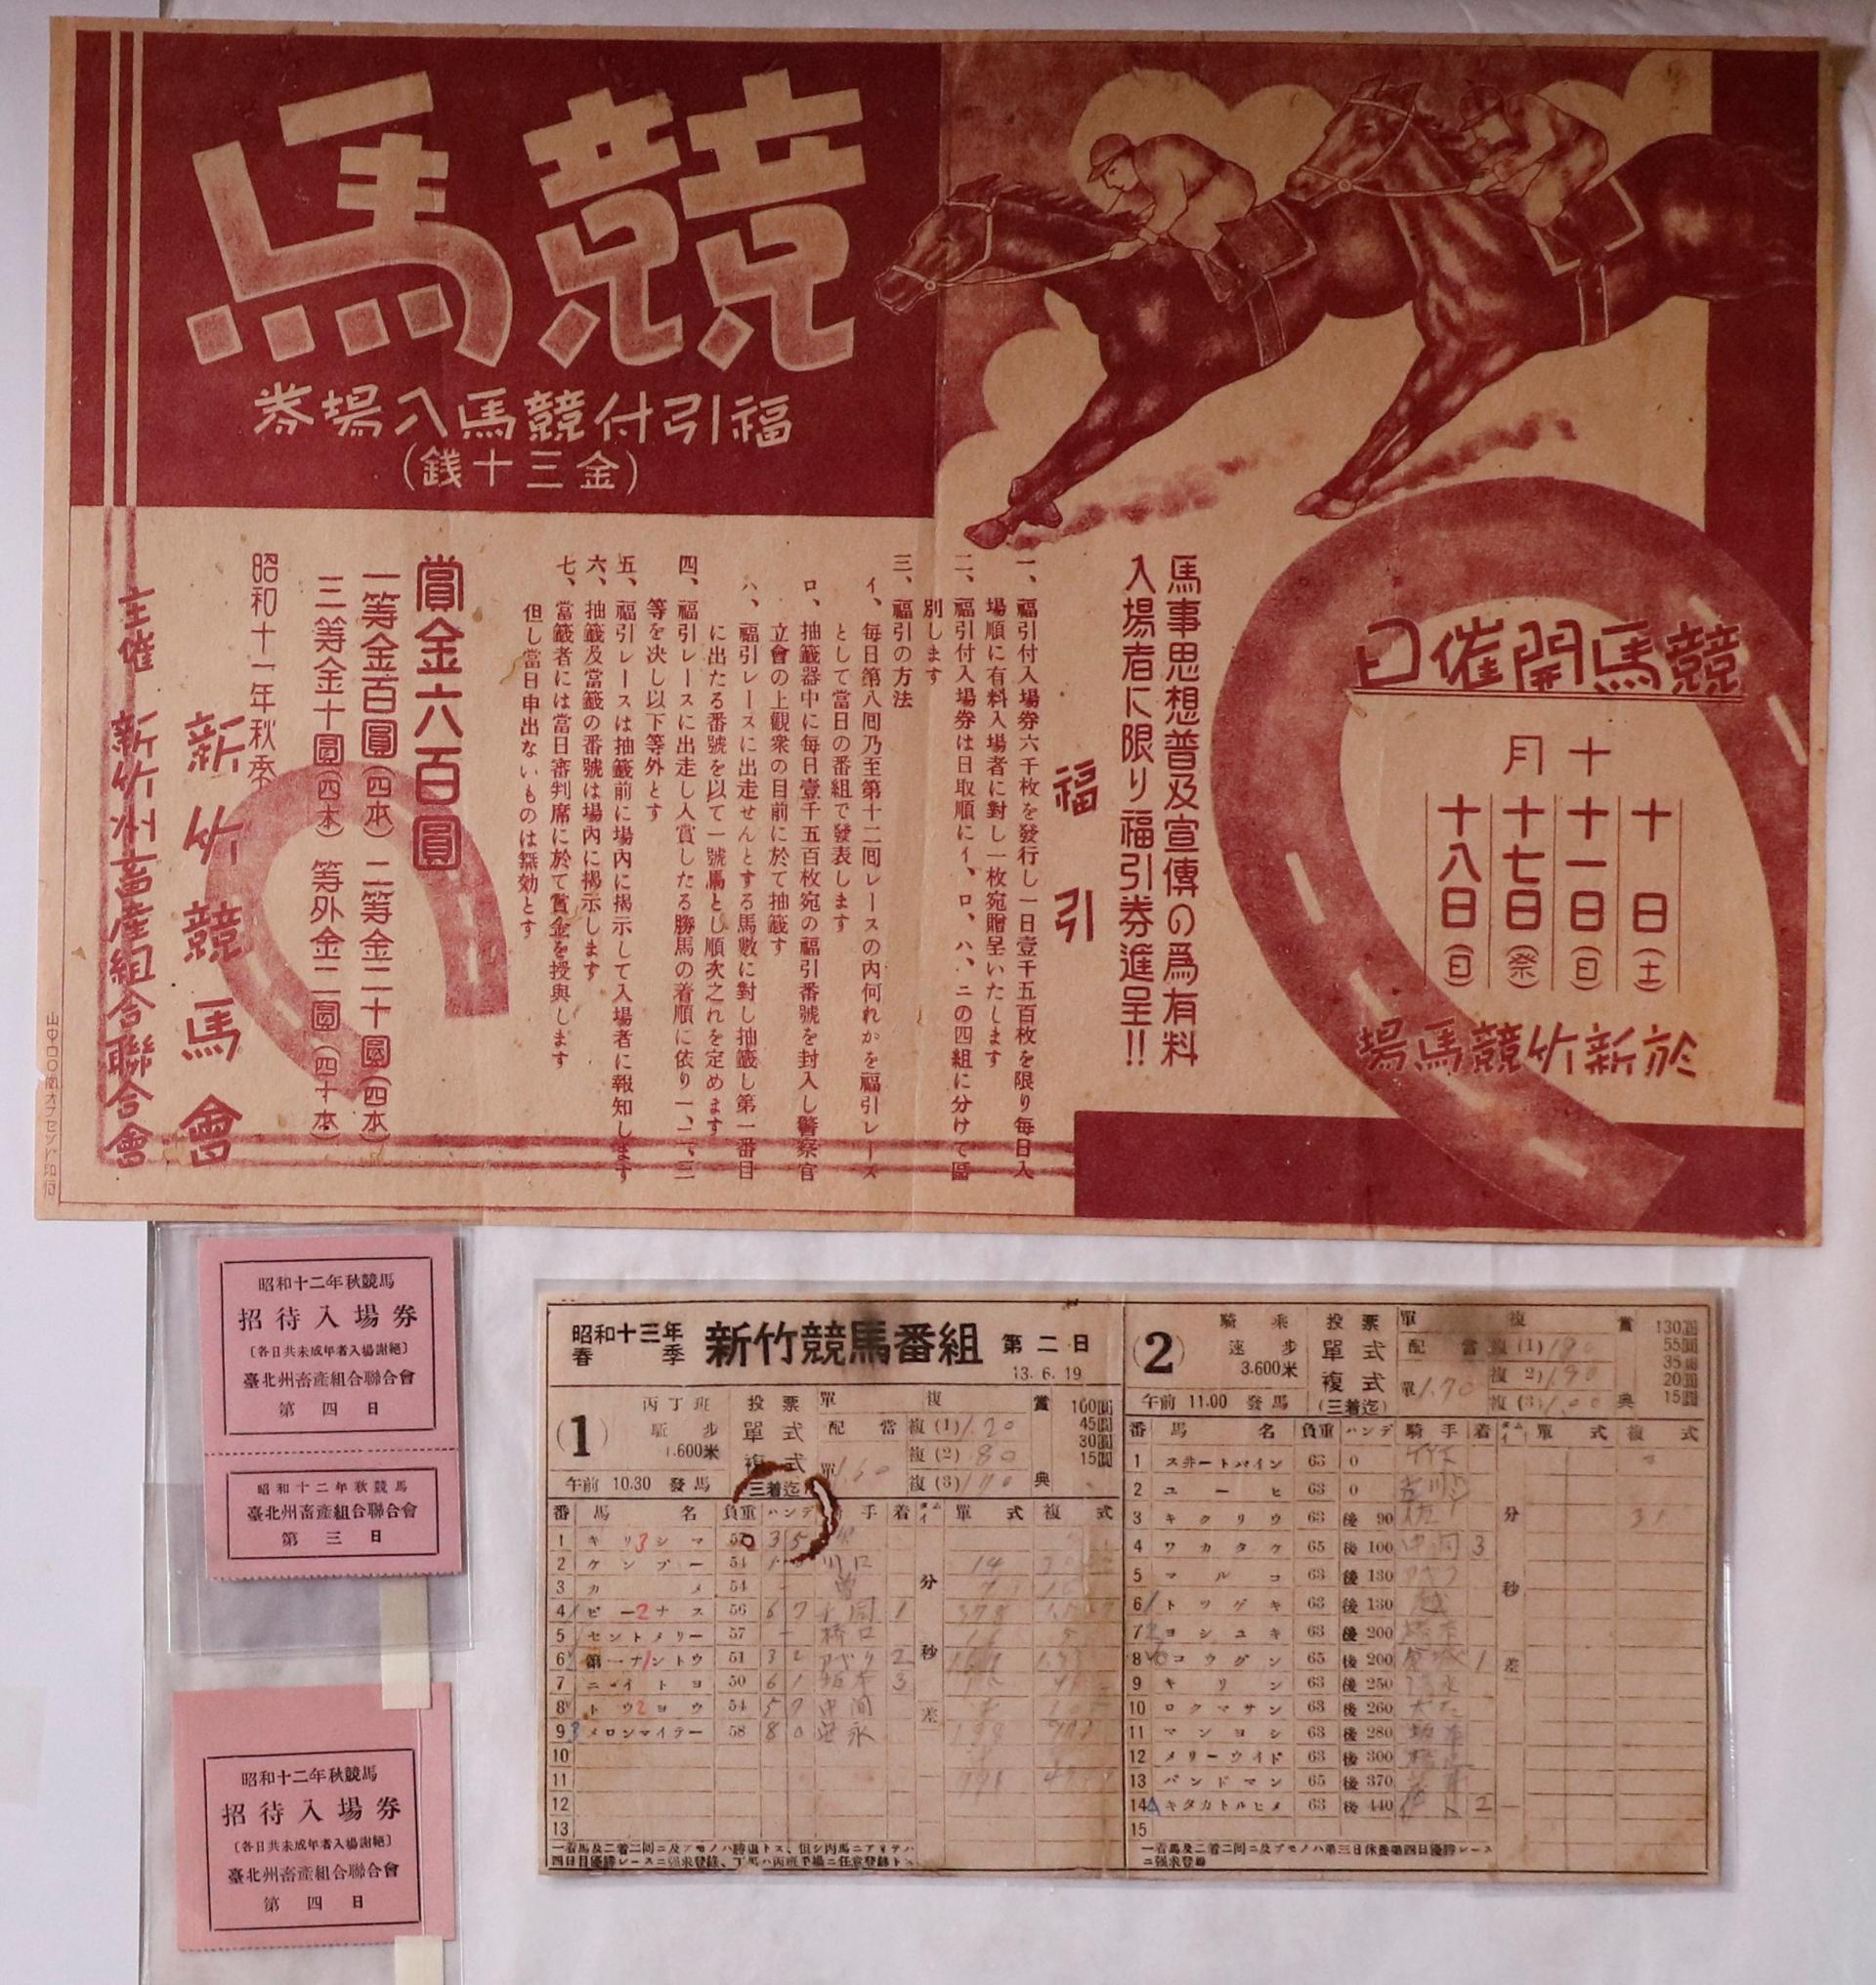 競馬
福引付競馬入場券
(金三十銭)
競馬開催日
十月
十日(土)
十一日(日)
十七日(祭)
十八日(日)
於新竹競馬場
馬事思想普及宣傳の爲有料
入場者に限り福引券進呈!!
福引
一、福引付入場券六千枚を發行し一日壹千五百枚を限り毎日入
場順に有料入場者に對し一枚宛贈呈いたします
二、福引付入場券は日取順にイ、ロ、ハ、ニの四組に分けて區
別します
三、福引の方法
イ、毎日第八回乃至第十二回レースの内何れかを福引レース
として當日の番組で發表します
ロ、抽籤器中に毎日壹千五百枚宛の福引番號を封入し警察官
立會の上觀衆の目前に於て抽籤す
ハ、福引レースに出走せんとする馬數に對し抽籤し第一番目
に出たる番號を以て一號馬とし順次之れを定めます
四、福引レースに出走し入賞したる勝馬の着順に依り一、二、三
等を決し以下等外とす
五、福引レースは抽籤前に場内に揭示して入場者に報知します
六、抽籤及當籤の番號は場内に揭示します
七、當籤者には當日審判席に於て賞金を授與します
但し當日申出ないものは無効とす
賞金六百圓
一等金百圓(四本) 二等金二十圓(四本)
三等金十圓(四本) 等外金二圓(四十本)
昭和十一年秋季
新竹競馬會
主催 新竹州畜產組合聯合會
昭和十二年秋競馬
招待入場券
〔各日共未成年者入場謝絕〕
臺北州畜產組合聯合會
第四日
昭和十二年秋競馬
臺北州畜產組合聯合會
第三日
昭和十二年秋競馬
招待入場券
〔各日共未成年者入場謝絕〕
臺北州畜產組合聯合會
第四日
昭和十三年春季 新竹競馬番組 第二日
13.6.19
(1) 丙丁班 駈步 1.600米
午前 10.30 發馬
投票 單式 複式 (三着迄)
單 複
配當 複(1) 1.20
複(2) .80
複(3) 1.10
單 1.50
賞典 100圓 45圓 30圓 15圓
番 馬名 負重 ハンデ 騎手 着 タイム 單式 複式
1 キリシマ
2 ケンプー 54 川口
3 カメ 54
4 ビーナス 56 67 1
5 セントメリー 57 橋口
6 第一ナントウ 51 2
7 ニメイトヨ 50 61 坂本 3
8 トウヨウ 54 57 中間
9 メロンマイテー 58 80
10
11
12
13
分 秒 差
(2) 騎乘 速步 3.600米
午前 11.00 發馬
投票 單式 複式 (三着迄)
單 複
配當 複(1) 1.90
複(2) 1.90
複(3) 1.00
單 1.70
賞典 130圓 55圓 35圓 20圓 15圓
番 馬名 負重 ハンデ 騎手 着 タイム 單式 複式
1 スヰートパイン 63 0
2 ユーヒ 63 0
3 キクリウ 63 後 90
4 ワカタケ 65 後 100 3
5 マルコ 63 後 130
6 トツゲキ 63 後 130
7 ヨシユキ 63 後 200
8 コウグン 65 後 200 1
9 キリン 63 後 250 清水
10 ロクマサン 63 後 260
11 マンヨシ 63 後 280 坂本
12 メリーウイド 63 後 300
13 バンドマン 65 後 370
14 キタカトルヒメ 63 後 440 2
15
分 秒 差